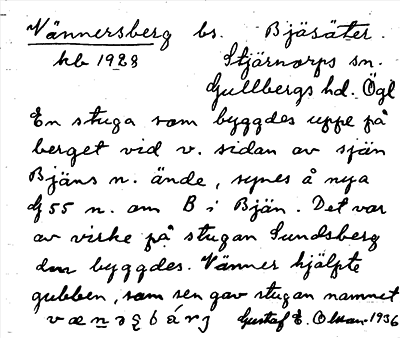 Vännersberg bs. Bjäsäter.
hb 1928 Stjärnorps sn.
Gullbergs hd. Ögl
En stuga som byggdes uppe på
berget vid v. sidan av sjän
Bjäns n. ände, synes å nya
G 55 n. om B i Bjän. Det var
av virke på stugan Sundsberg
den byggdes. Vänner hjälpte
gubben, som sen gav stugan namnet
Gustaf E. Olsson 1936